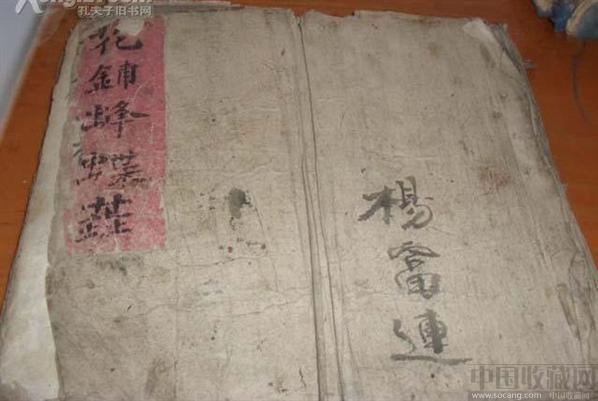 孔夫子旧书网
花鋪蜂蝶
楊富連
中国收藏网
www.socang.com 中国收藏网